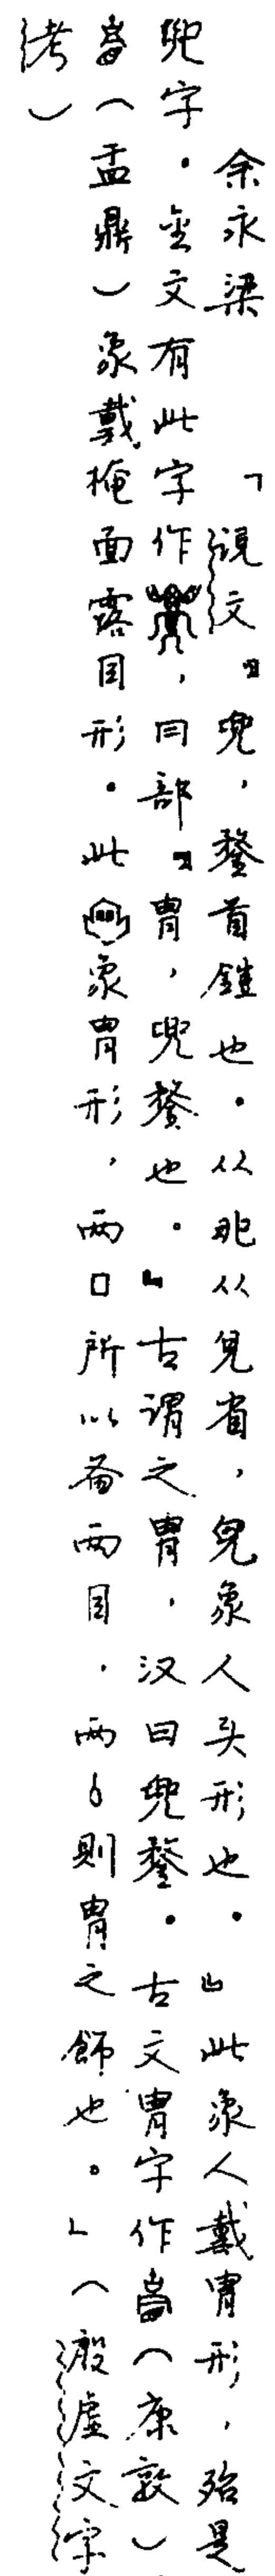 余永梁「說文『兜，鍪首鎧也。从𠑹从皃省，皃象人头形也。』此象人戴冑形，殆是
兜字。金文有此字作，冃部『冑，兜鍪也。』古謂之冑，汉曰兜鍪。古文冑字作（康敦）
（盂鼎）象戴掩面露目形。此象冑形，两口所以备两目，两則冑之飾也。」（殷虛文字
考）